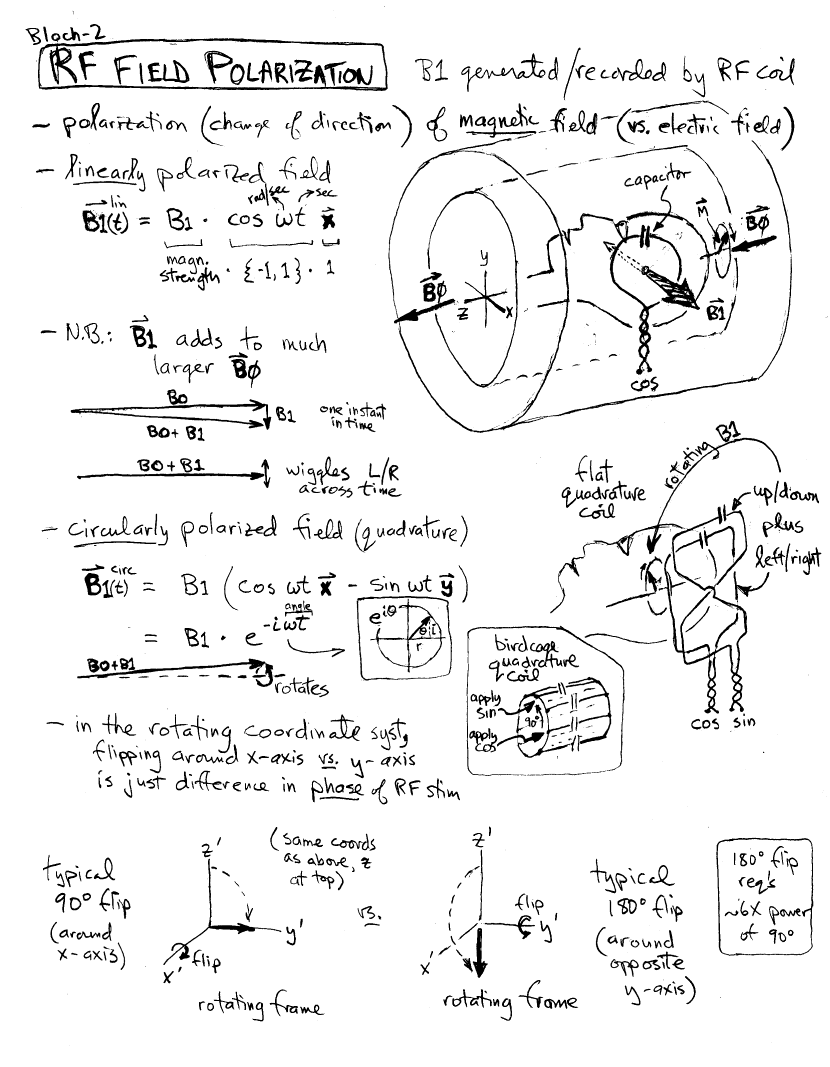 Bloch-2
RF FIELD POLARIZATION
B1 generated/recorded by RF coil
- polarization (change of direction) of magnetic field (vs. electric field)
- linearly polarized field
rad/sec
sec
B1(t) lin = B1 · cos ωt x
magn. strength · {-1, 1} · 1
capacitor
M
BØ
y
BØ
z
x
B1
cos
- N.B.: B1 adds to much
larger BØ
B0
B1
one instant
in time
B0+B1
B0+B1
wiggles L/R
across time
flat
quadrature
coil
rotating B1
up/down
plus
left/right
- circularly polarized field (quadrature)
B1(t) circ = B1 (cos ωt x - sin ωt y)
angle
= B1 · e^-iωt
e^iθ
θ
i
r
B0+B1
rotates
birdcage
quadrature
coil
apply
sin
90°
apply
cos
cos sin
- in the rotating coordinate syst,
flipping around x-axis vs. y-axis
is just difference in phase of RF stim
typical
90° flip
(around
x-axis)
z'
y'
x'
flip
rotating frame
(same coords
as above, z
at top)
vs.
z'
flip
y'
x'
rotating frame
typical
180° flip
(around
opposite
y-axis)
180° flip
req's
~6X power
of 90°